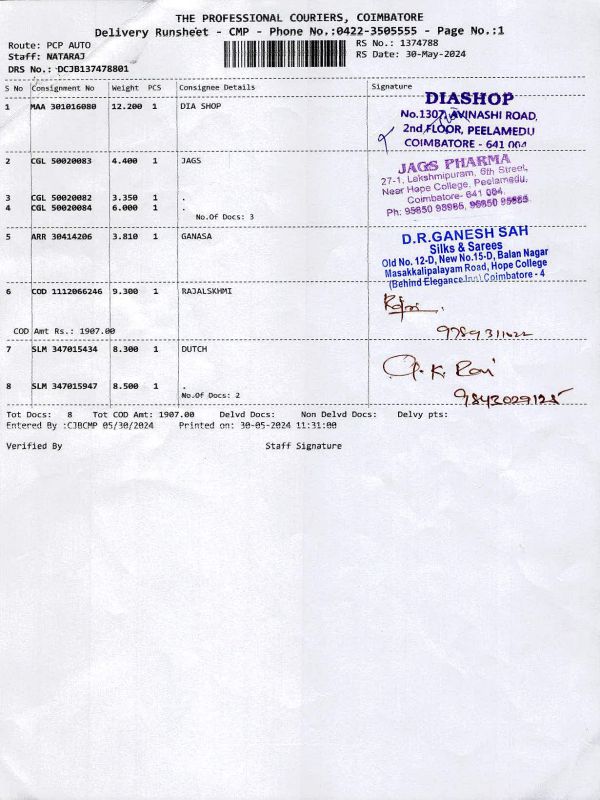 THE PROFESSIONAL COURIERS, COIMBATORE
Delivery Runsheet - CMP - Phone No.:0422-3505555 - Page No.:1
Route: PCP AUTO RS No.: 1374788
Staff: NATARAJ RS Date: 30-May-2024
DRS No.: DCJB137478801
S No Consignment No Weight PCS Consignee Details Signature
1 MAA 301016080 12.200 1 DIA SHOP
DIASHOP
No.1307, AVINASHI ROAD,
2nd FLOOR, PEELAMEDU
COIMBATORE - 641 004
2 CGL 50020083 4.400 1 JAGS
JAGS PHARMA
27-1, Lakshmipuram, 6th Street,
Near Hope College, Peelamedu,
Coimbatore- 641 004.
Ph: 95650 98985, 96850 95665.
3 CGL 50020082 3.350 1 .
4 CGL 50020084 6.000 1 .
No.Of Docs: 3
5 ARR 30414206 3.810 1 GANASA
D.R.GANESH SAH
Silks & Sarees
Old No. 12-D, New No.15-D, Balan Nagar
Masakkalipalayam Road, Hope College
(Behind Elegance Inn) Coimbatore - 4
6 COD 1112066246 9.300 1 RAJALSKHMI
COD Amt Rs.: 1907.00
7 SLM 347015434 8.300 1 DUTCH
8 SLM 347015947 8.500 1 .
No.Of Docs: 2
9843029125
Tot Docs: 8 Tot COD Amt: 1907.00 Delvd Docs: Non Delvd Docs: Delvy pts:
Entered By :CJBCMP 05/30/2024 Printed on: 30-05-2024 11:31:00
Verified By Staff Signature